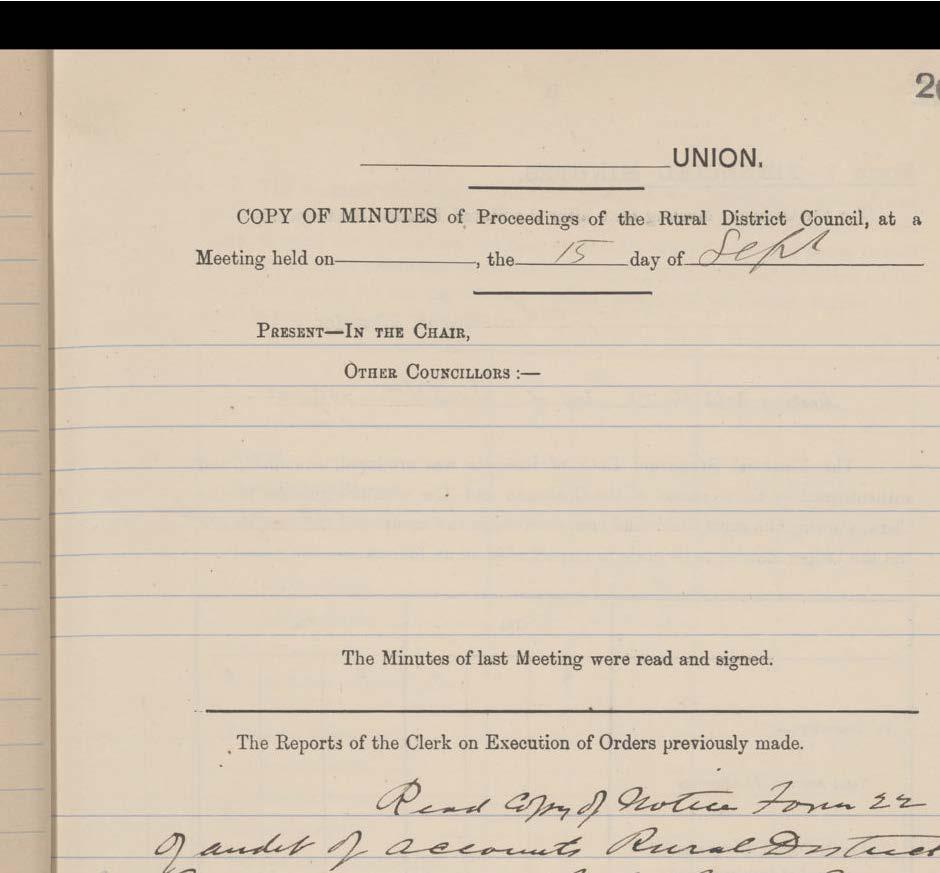 2
UNION.
COPY OF MINUTES of Proceedings of the Rural District Council, at a
Meeting held on , the 15 day of Sept
PRESENT—IN THE CHAIR,
OTHER COUNCILLORS :—
The Minutes of last Meeting were read and signed.
The Reports of the Clerk on Execution of Orders previously made.
Read Copy of Notice Form 22
of audit of accounts Rural District